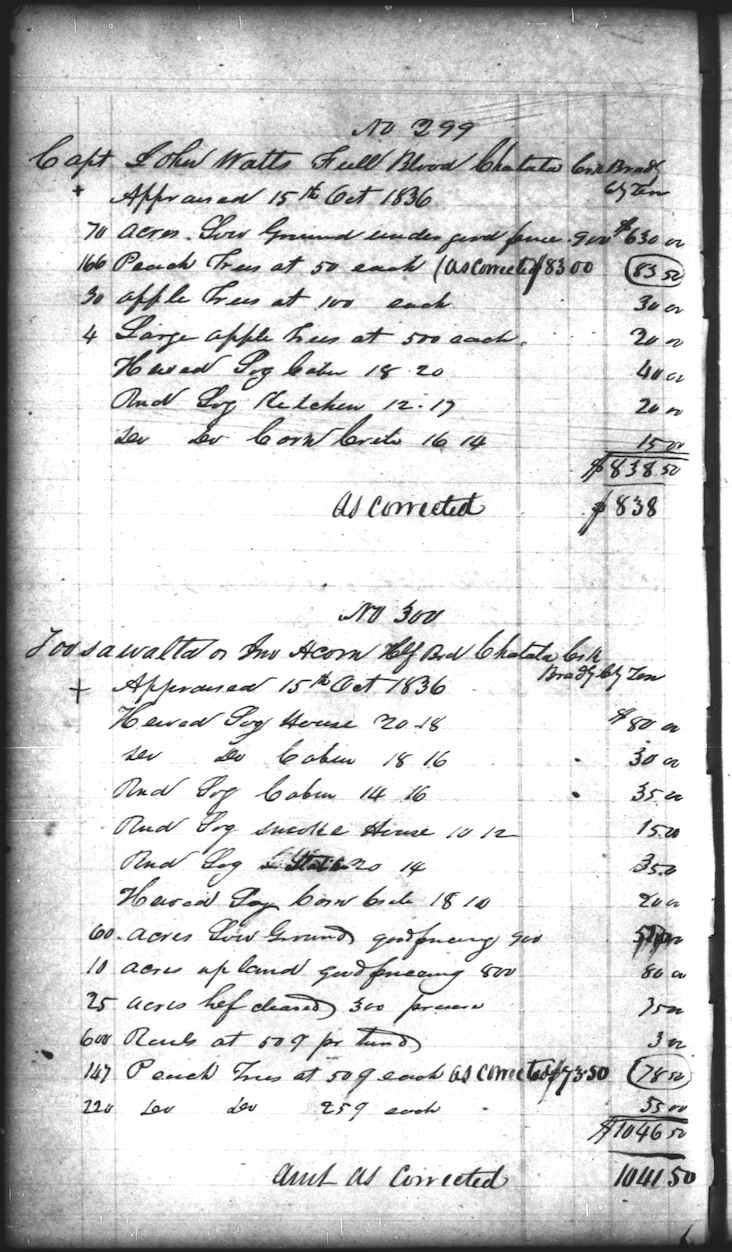 No 299
Capt John Watts Full Blood Chatata Crk Brady
Cty Ten
+ Appraised 15th Oct 1836
70 acres Low Ground under good fence 900 $630 00
166 Peach Trees at 50 each (as corrected $83 00 83 50
30 apple Trees at 100 each 30 00
4 Large apple Trees at 500 each. 20 00
Hewed Log Cabin 18 20 40 00
Rnd Log Kitchen 12 17 20 00
Do Do Corn Crib 16 14 15 00
$838 50
as corrected $838
No 300
Toosawalta or Jno Acorn Hlf Brd Chatata Crk
Brady Cty Ten
+ Appraised 15th Oct 1836
Hewed Log House 20 18 $80 00
Do Do Cabin 18 16 30 00
Rnd Log Cabin 14 16 35 00
Rnd Log smoke House 10 12 15 00
Rnd Log Stable 20 14 35 0
Hewed Log Corn Crib 18 10 20 0
60 acres Low Ground good fencing 900
10 acres upland good fencing 800 80 00
25 acres hlf cleared 300 pr acre 75 00
600 Rails at 50 ¢ pr hund 3 00
147 Peach Trees at 50 ¢ each as corrected $73.50 78 50
220 Do Do 25 ¢ each 55 00
$1046 50
amt as corrected 1041 50